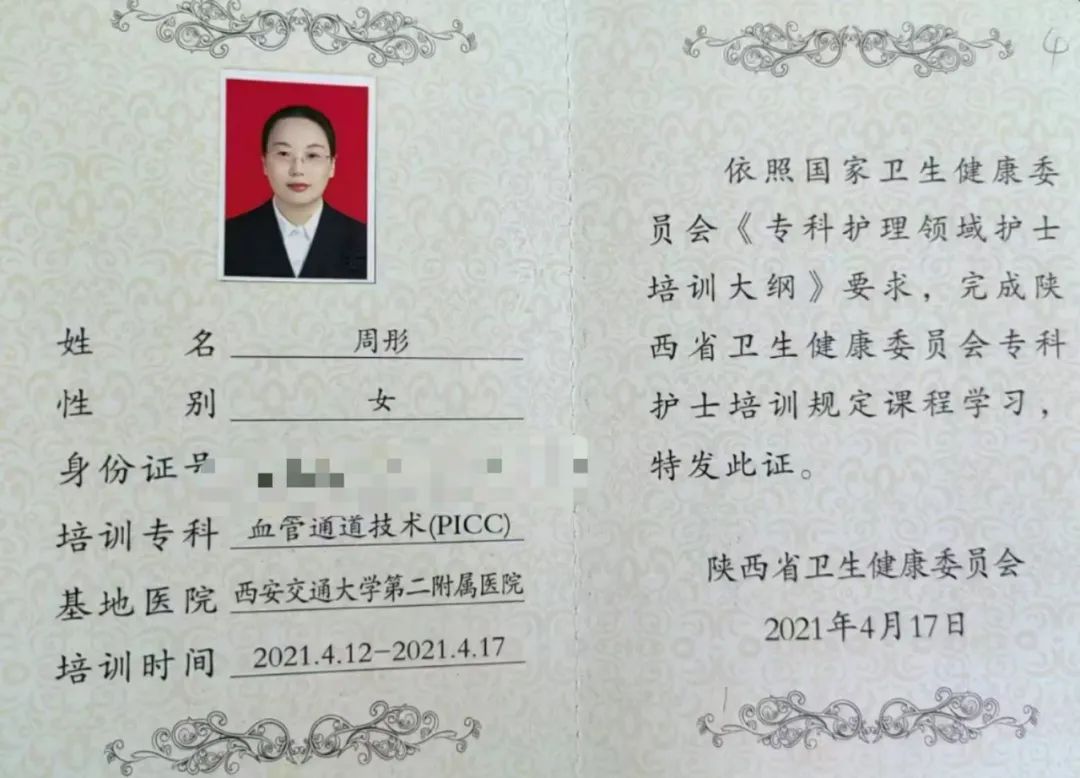 姓名 周彤
性别 女
身份证号
培训专科 血管通道技术(PICC)
基地医院 西安交通大学第二附属医院
培训时间 2021.4.12-2021.4.17
4
依照国家卫生健康委
员会《专科护理领域护士
培训大纲》要求，完成陕
西省卫生健康委员会专科
护士培训规定课程学习，
特发此证。
陕西省卫生健康委员会
2021年4月17日